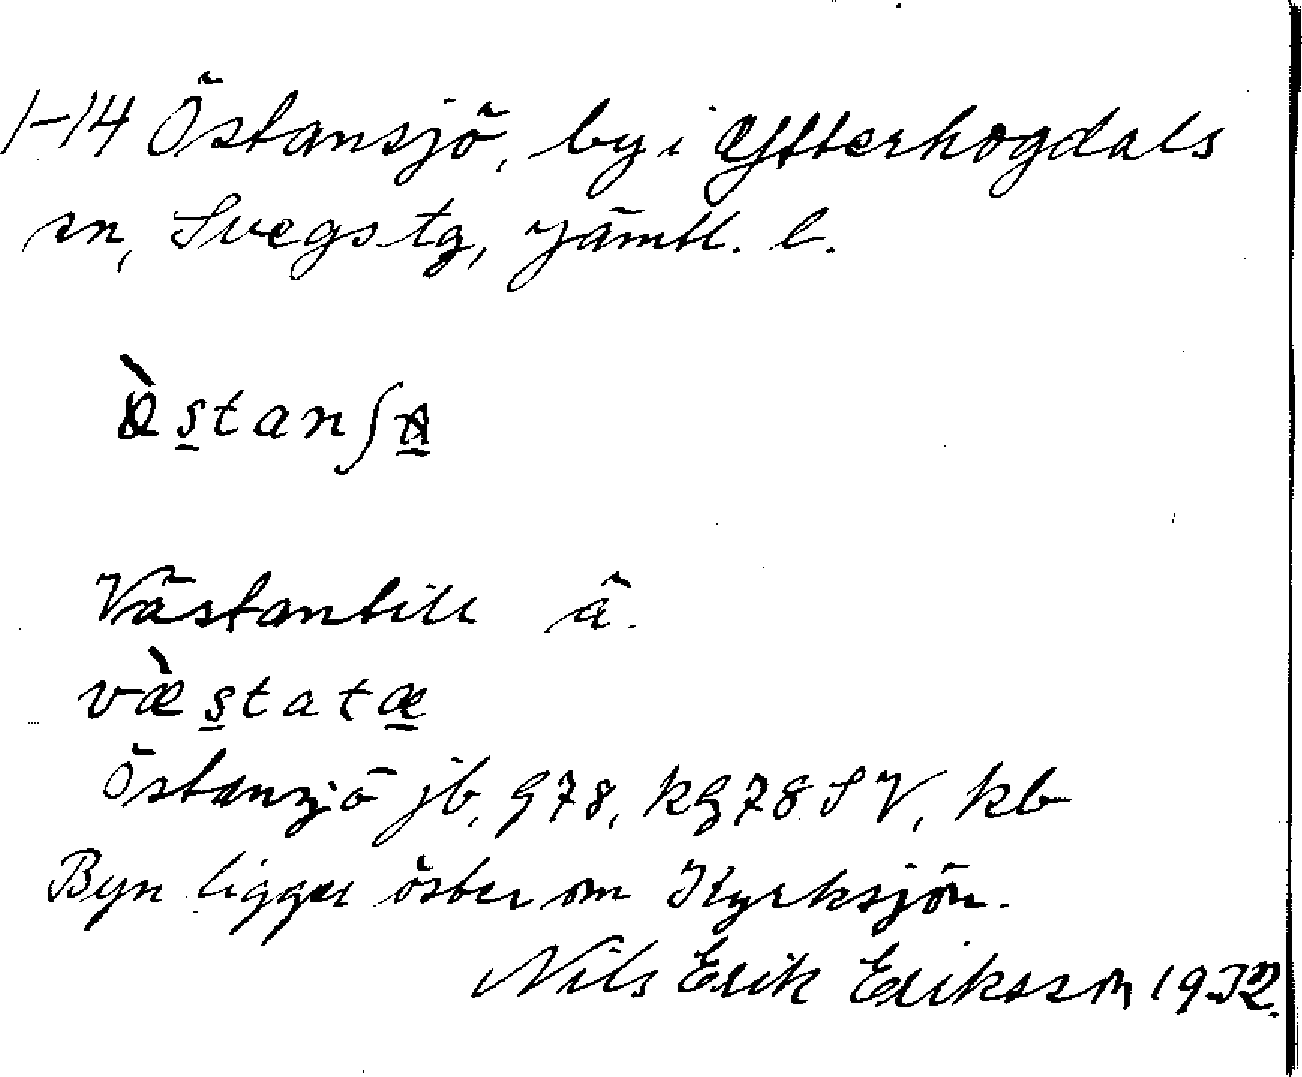 1-14 Östansjö, by i Ytterhogdals
sn, Svegs tg, Jämtl. l.
stanʃ
Västantill ä.
væ̀s̲tatæ̲
Östansjö jb, G78, kG78 SV, kb
Byn ligger öster om Kyrksjön.
Nils Erik Eriksson 1932.